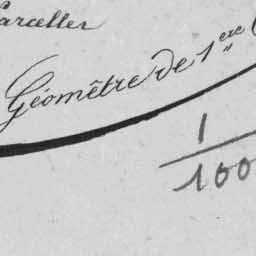 Parcelles
Géomètre de 1ere
1
100